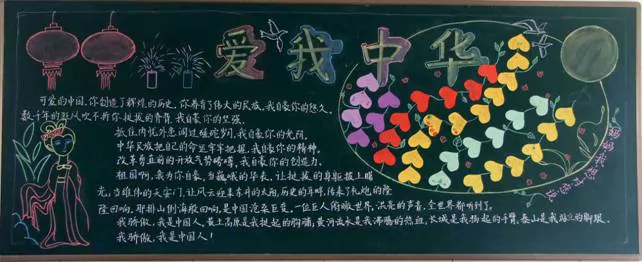 爱我中华
可爱的中国，你创造了辉煌的历史，你养育了伟大的民族，我自豪你的悠久，
数千年的狂风吹不折你挺拔的脊背，我自豪你的坚强，
抵住内忧外患闯过坎坷岁月，我自豪你的光明，
中华民族把自己的命运牢牢把握，我自豪你的精神，
改革勇立前的开放气势磅礴，我自豪你的创造力。
祖国啊，我为你自豪，当巍峨的华表，让挺拔的身躯披上曙
光，当雄伟的天安门，让风云迎来东升的太阳，历史的耳畔，传来了礼炮的隆
隆回响，那排山倒海般回响，是中国沧桑巨变，一位巨人俯瞰世界，洪亮的声音，全世界都听到了。
我骄傲，我是中国人，黄土高原是我挺起的胸脯，黄河流水是我沸腾的热血，长城是我扬起的手臂，泰山是我站立的脚跟。
我骄傲，我是中国人！